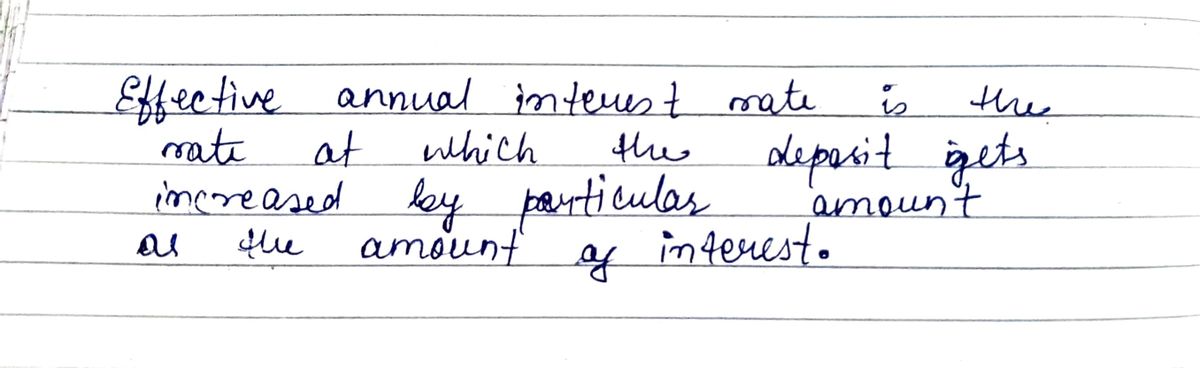 Effective annual interest rate is the
rate at which the deposit gets
increased by particular amount
as the amount of interest.